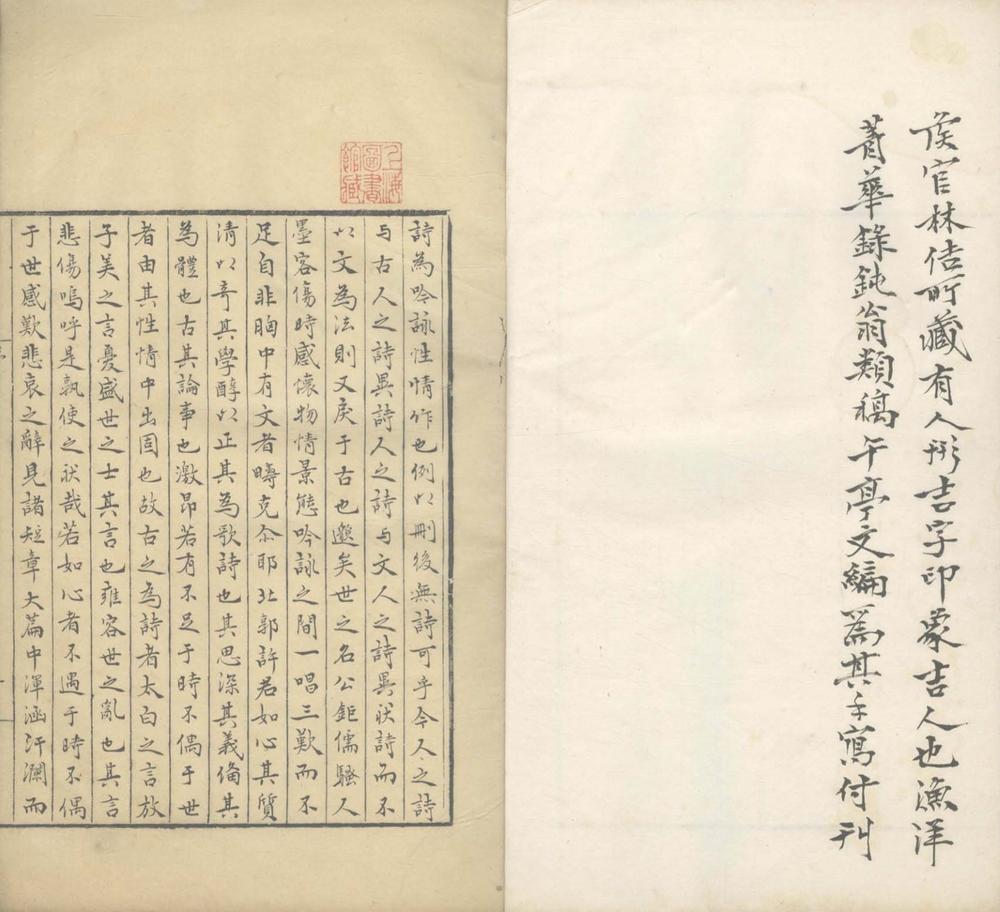 侯官林佶所藏有人形吉字印象吉人也漁洋
菁華錄鈍翁類稿午亭文編爲其手寫付刊
上海圖書館藏
詩為吟詠性情作也例以刪後無詩可乎今人之詩
与古人之詩異詩人之詩与文人之詩異狀詩而不
以文為法則又戾于古也邈矣世之名公鉅儒騷人
墨客傷時感懷物情景態吟詠之間一唱三歎而不
足自非胸中有文者疇克尒耶北郭許君如心其質
清以竒其學醇以正其為歌詩也其思深其義俻其
為體也古其論事也激昂若有不足于時不偶于世
者由其性情中出固也故古之為詩者太白之言放
子美之言憂盛世之士其言也雍容世之亂也其言
悲傷嗚呼是孰使之狀哉若如心者不遇于時不偶
于世感歎悲哀之辭見諸短章大篇中渾涵汗瀾而